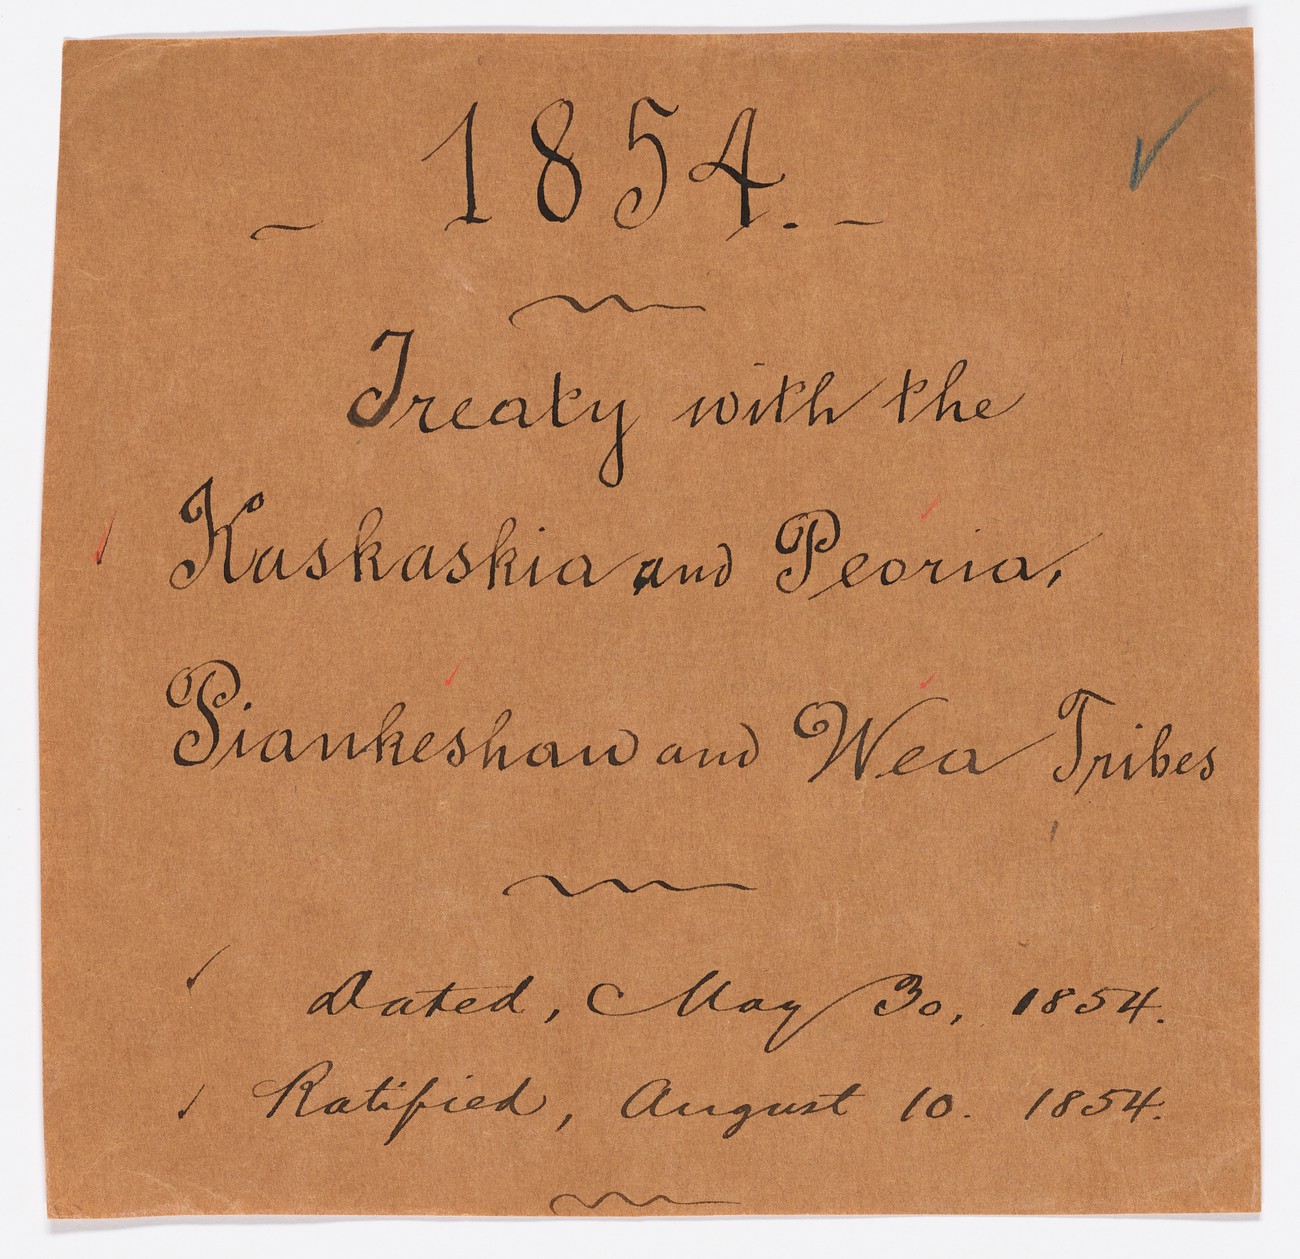 1854.
Treaty with the
Kaskaskia and Peoria,
Piankeshaw and Wea Tribes
Dated, May 30, 1854.
Ratified, August 10. 1854.